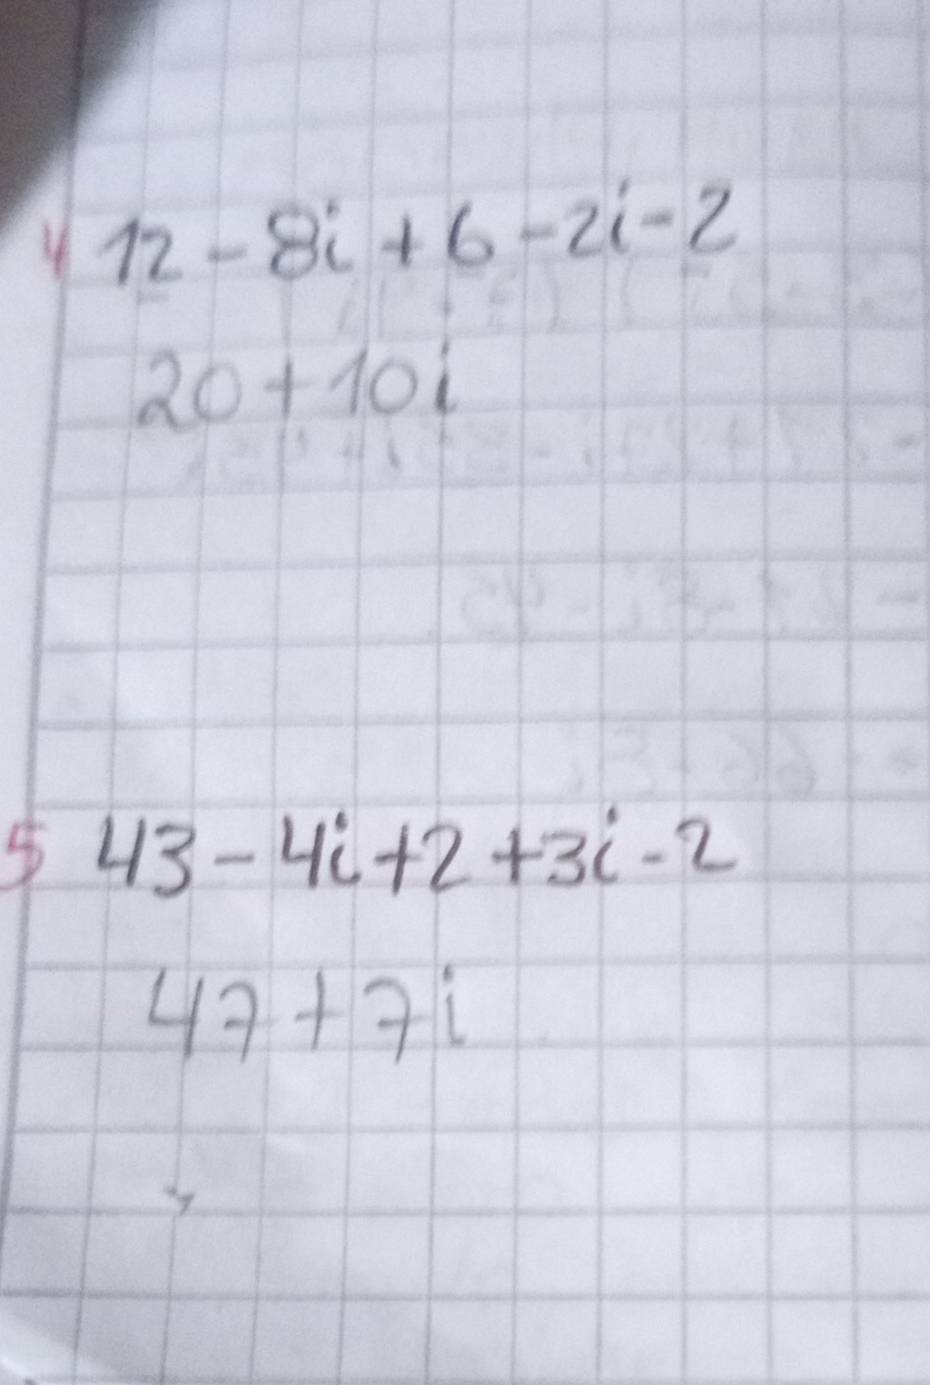 4 12 - 8i + 6 - 2i - 2
20 + 10i
5 43 - 4i + 2 + 3i - 2
47 + 7i